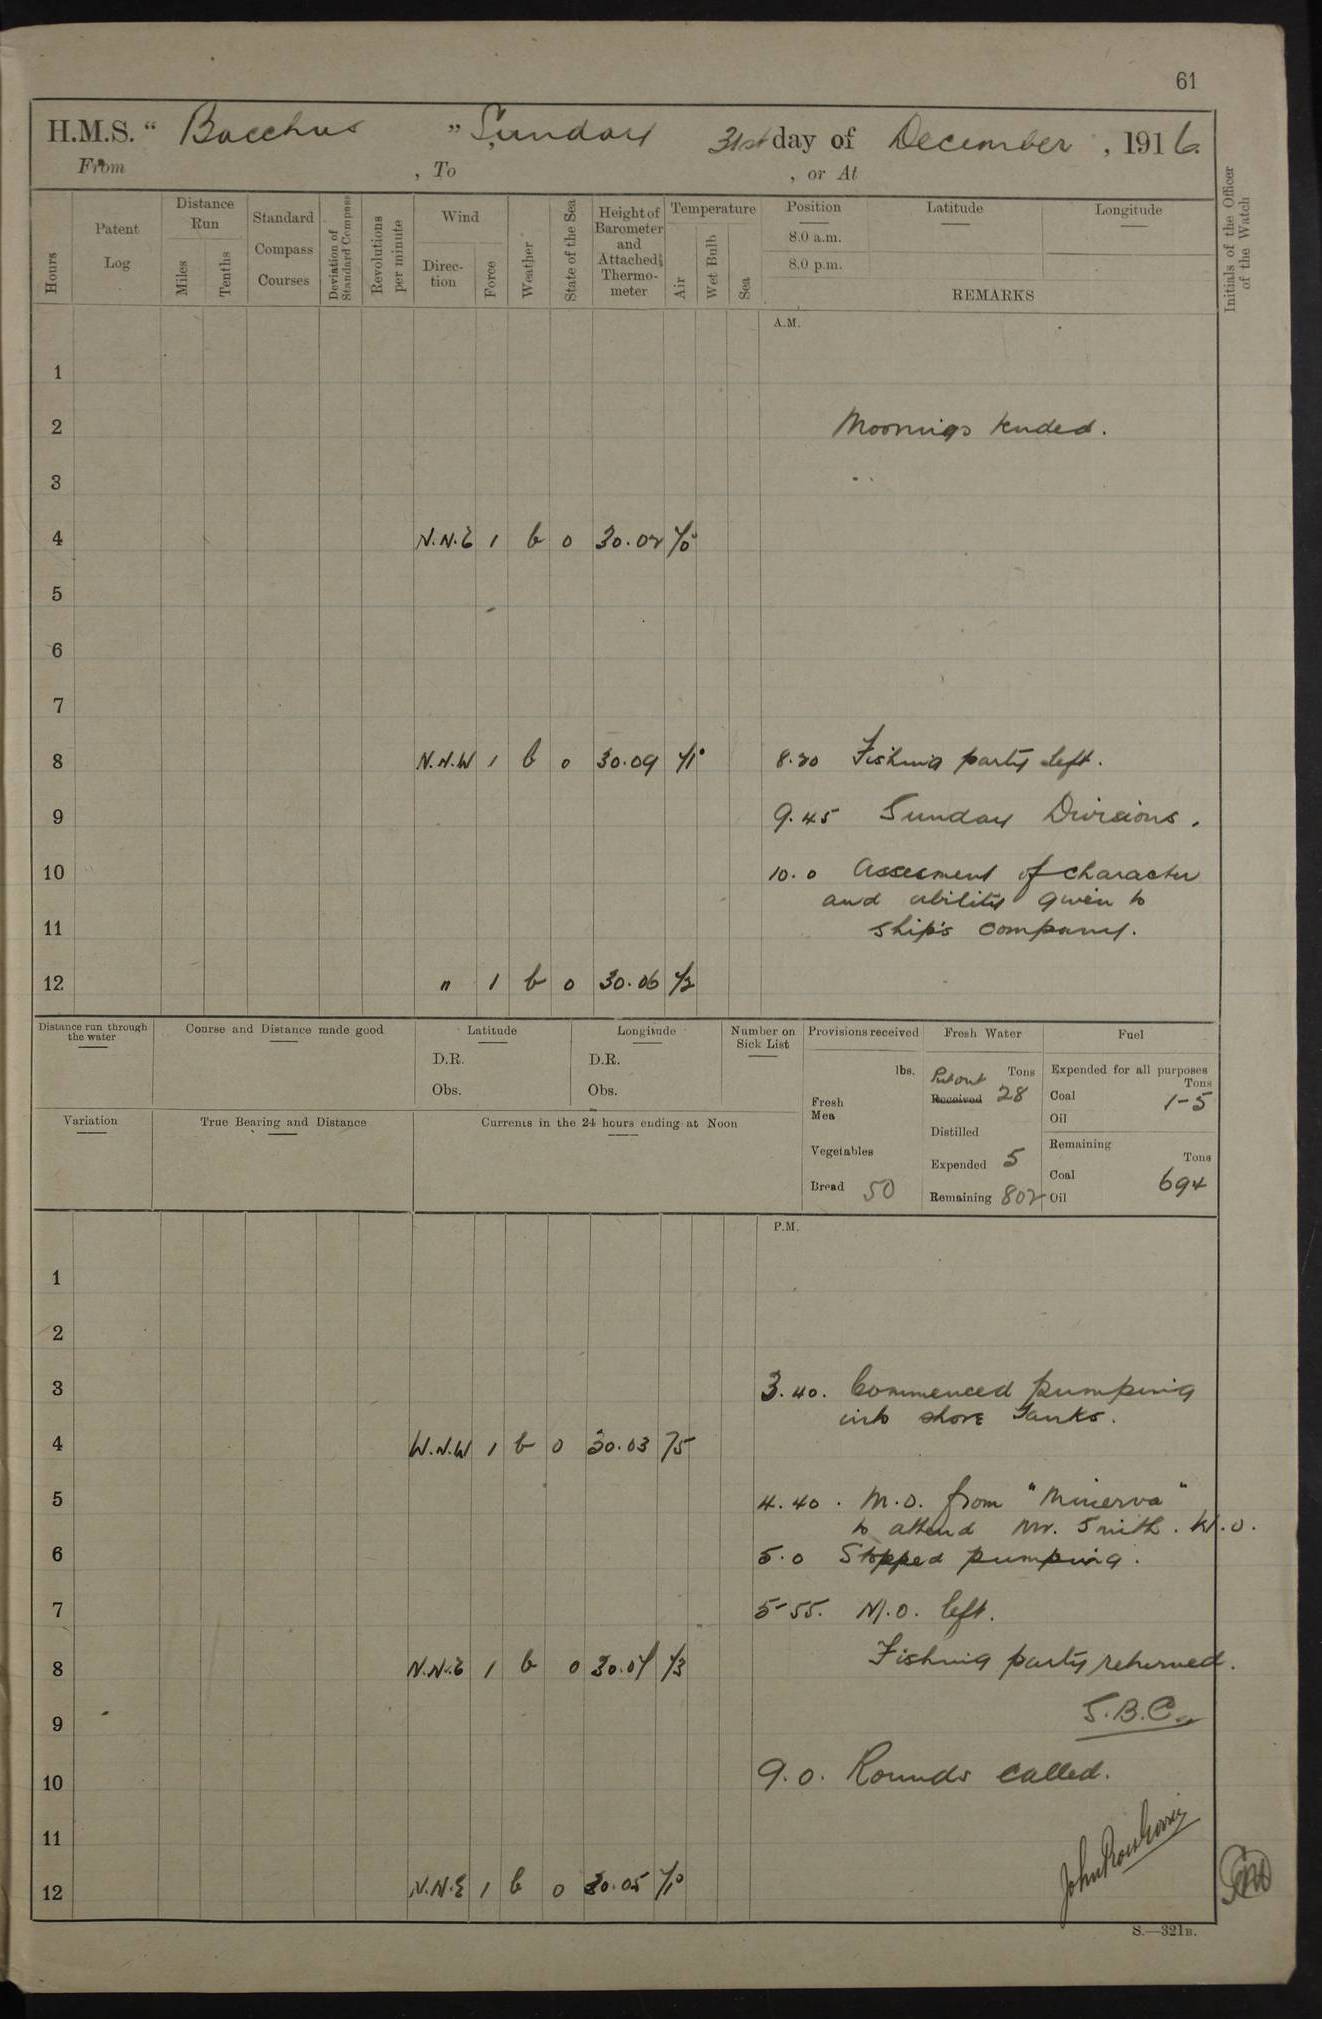 61
H.M.S. " Bacchus " Sunday 31st day of December , 1916.
From , To , or At
Hours
Patent Log
Distance Run
Miles
Tenths
Standard Compass Courses
Deviation of Standard Compass
Revolutions per minute
Wind
Direc-tion
Force
Weather
State of the Sea
Height of Barometer and Attached Thermo-meter
Temperature
Air
Wet Bulb
Sea
Position Latitude Longitude
8.0 a.m.
8.0 p.m.
REMARKS
Initials of the Officer of the Watch
A.M.
1
2 Moorings tended.
3
4 N.N.E 1 b 0 30.02 70
5
6
7
8 N.N.W 1 b 0 30.09 71° 8.20 Fishing party left.
9 9.45 Sunday Divisions.
10 10.0 Assesment of character
and ability given to
11 ship's company.
12 " 1 b 0 30.06 72
Distance run through the water
Course and Distance made good
Latitude
D.R.
Obs.
Longitude
D.R.
Obs.
Number on Sick List
Provisions received
lbs.
Fresh Mea
Vegetables
Bread 50
Fresh Water
Tons
Put out
Received 28
Distilled
Expended 5
Remaining 802
Fuel
Expended for all purposes
Tons
Coal 1-5
Oil
Remaining
Tons
Coal 694
Oil
Variation
True Bearing and Distance
Currents in the 24 hours ending at Noon
P.M.
1
2
3 3.40. Commenced pumping
into shore Tanks.
4 W.N.W 1 b 0 30.03 75
5 4.40. M.O. from "Minerva"
to attend Mr. Smith. W.O.
6 5.0 Stopped pumping.
7 5-55. M.O. left.
8 N.N.E 1 b 0 30.04 73 Fishing party returned.
9 S.B.C.
10 9.0. Rounds called.
11
12 N.N.E 1 b 0 30.05 71°
S.—321B.